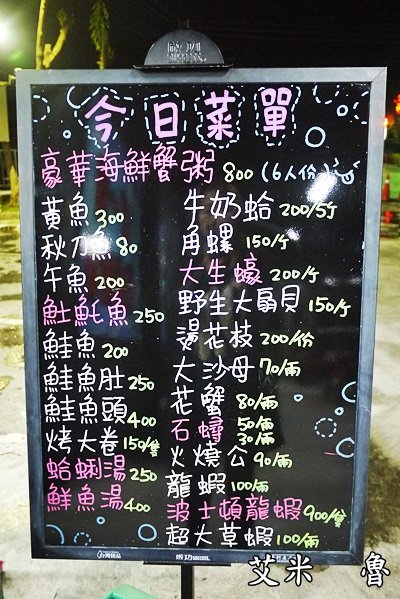 今日菜單
豪華海鮮蟹粥 800 (6人份)
黃魚 300
秋刀魚 80
午魚 200
魠魚 250
鮭魚 200
鮭魚肚 250
鮭魚頭 400
烤大卷 150/隻
蛤蜊湯 250
鮮魚湯 400
牛奶蛤 200/5个
角螺 150/个
大生蠔 200/个
野生大扇貝 150/个
燙花枝 200/份
大沙母 70/兩
花蟹 80/兩
石蟳 50/兩 30/兩
火燒公 90/兩
龍蝦 100/兩
波士頓龍蝦 900/隻
超大草蝦 100/兩
艾米 魯